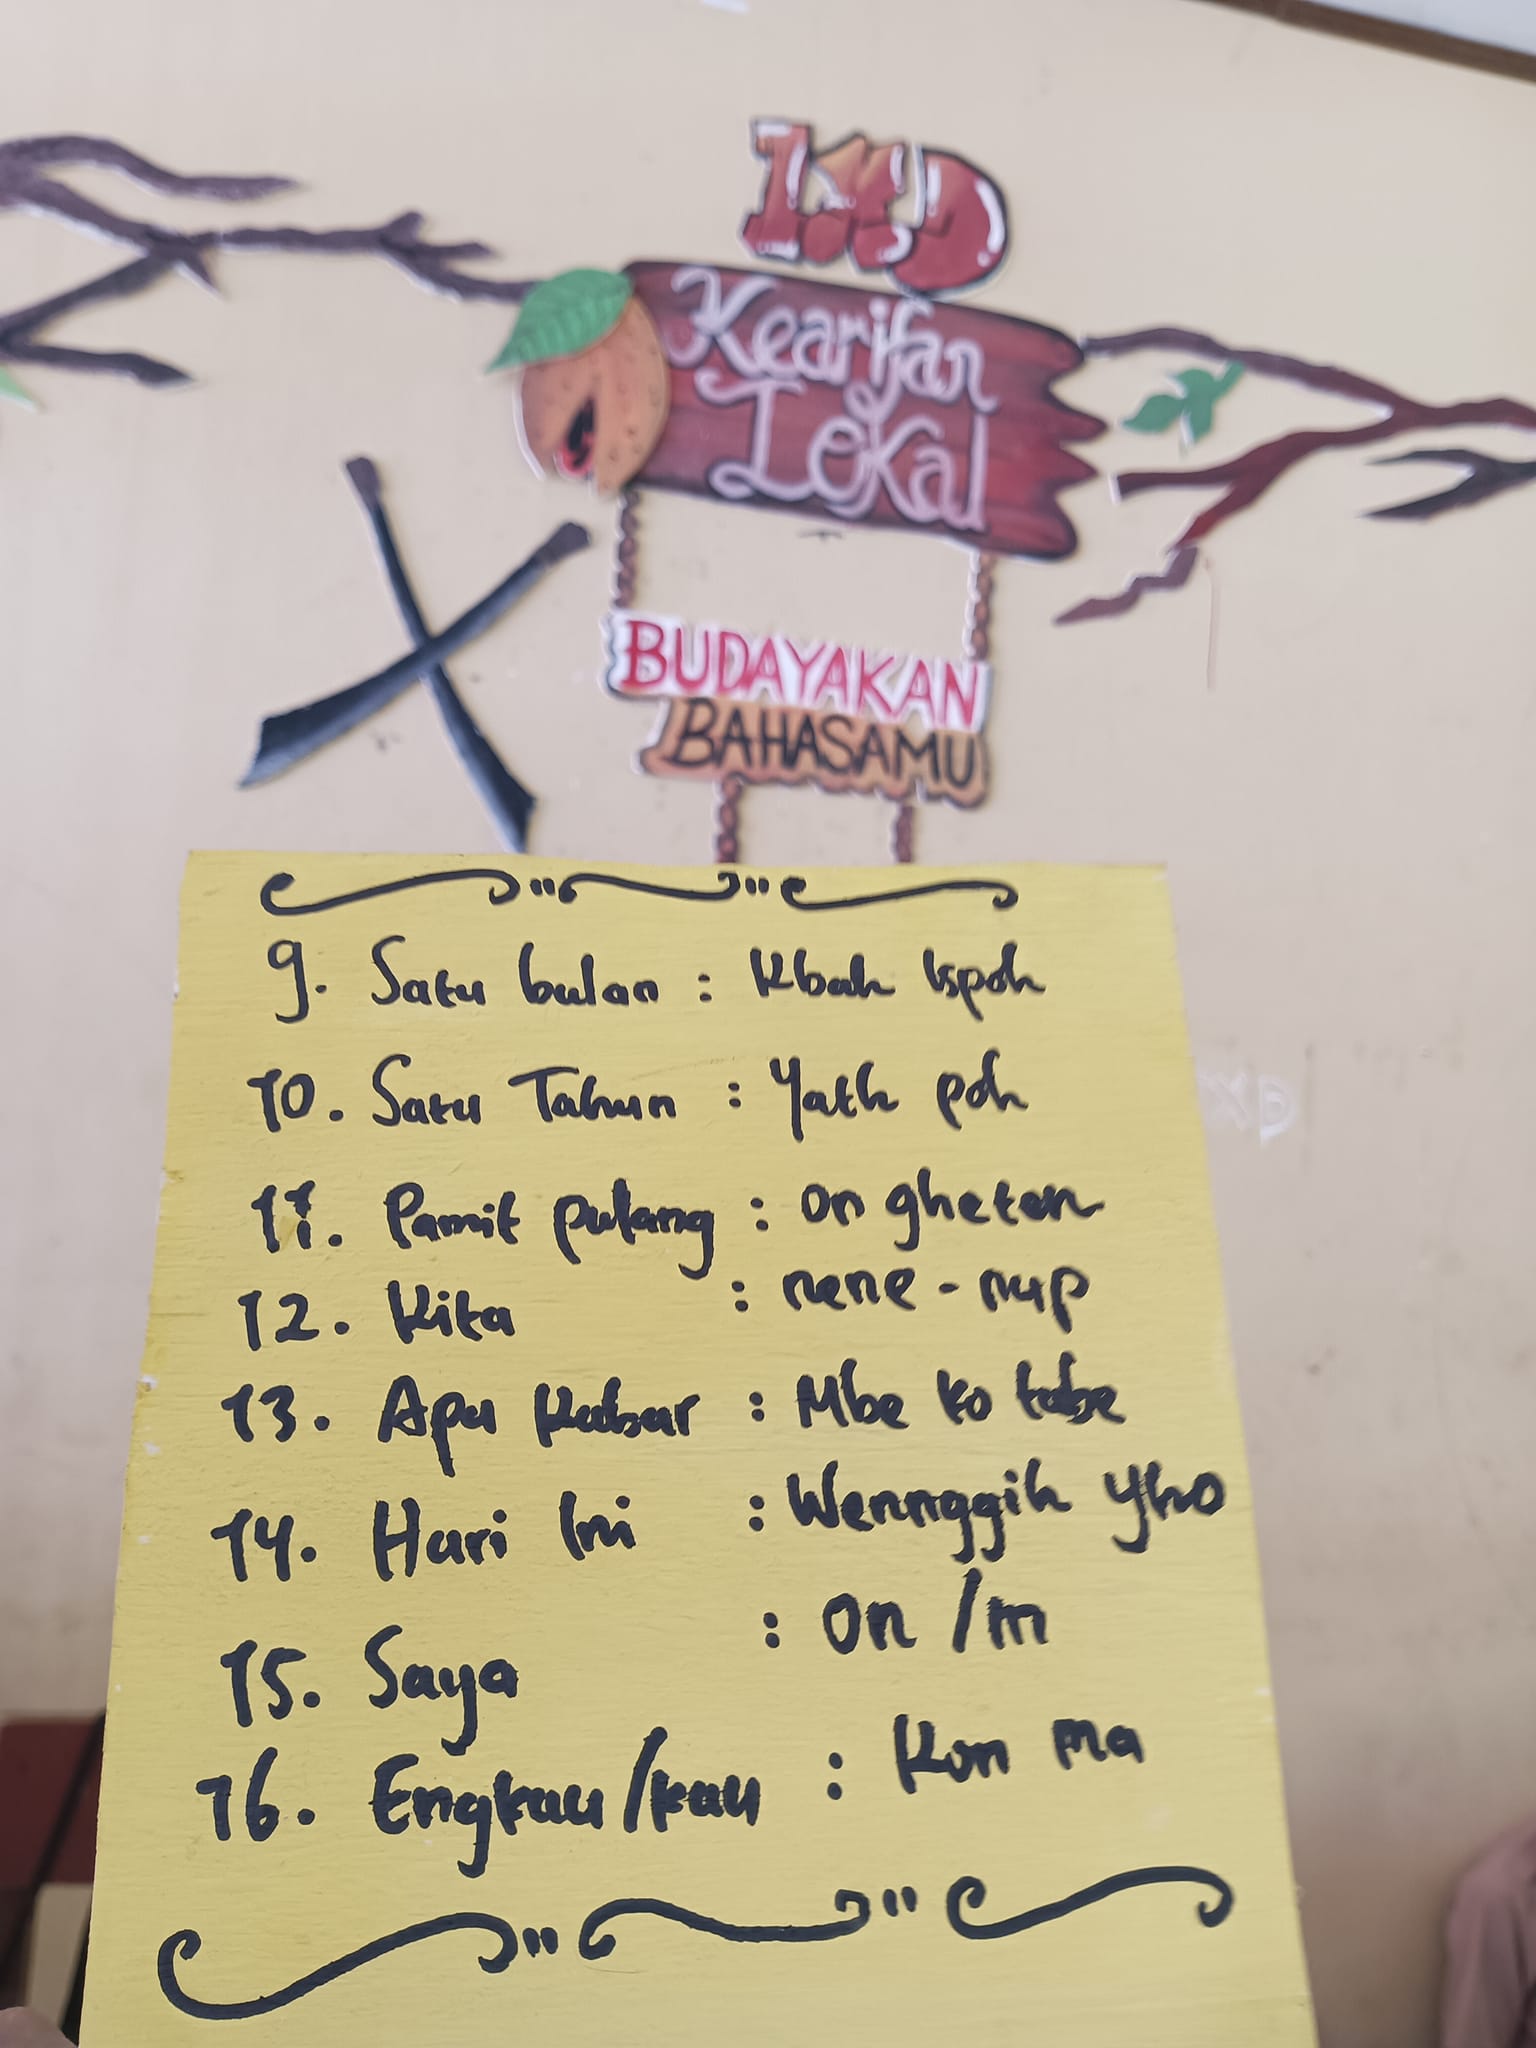 Kearifan
Lokal
BUDAYAKAN
BAHASAMU
9. Satu bulan : Kbah Ispoh
10. Satu Tahun : Yath poh
11. Pamit pulang : on gheten
12. Kita : nene - nup
13. Apa Kabar : Mbe ko tabe
14. Hari Ini : Wennggih Yho
15. Saya : On /m
16. Engkau/kau : Kon ma